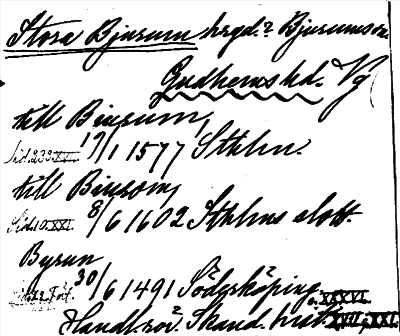 Stora Bjurum hrgd. Bjurums sn.
Gudhems hd. Vg
till Biurum,
Sid. 233 XVI. 19/1 1577 Sthlm.
till Biurom,
Sid. 10 XXI. 8/6 1602 Sthlms slott.
Byrun
30/6 1491 Söderköping. XXXVI.
Handl. rör. Skand. hist. XVII, XXI.